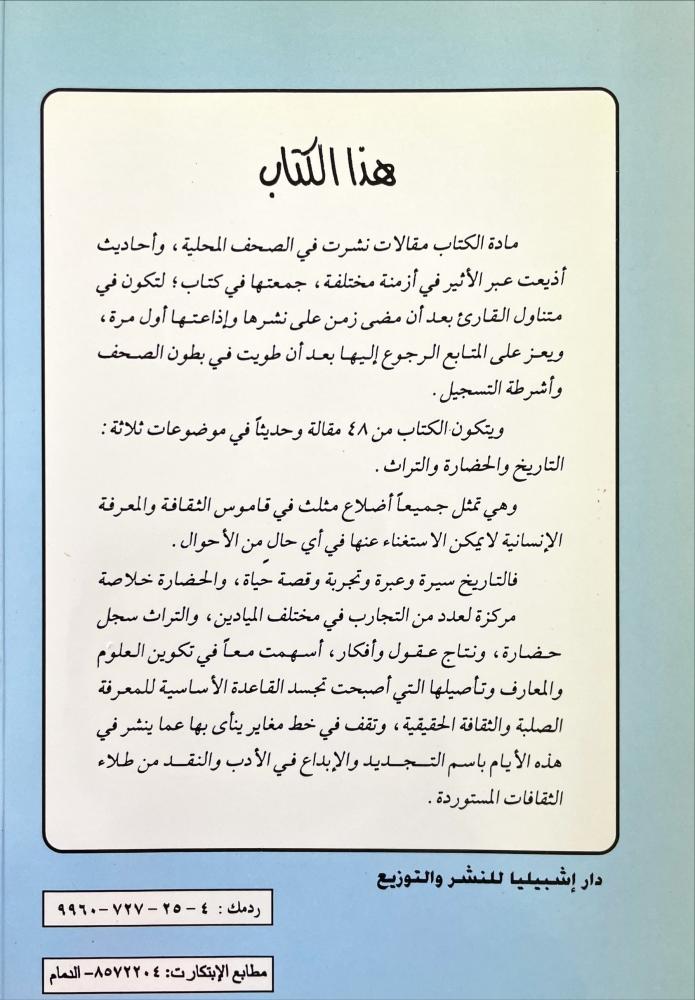 هذا الكتاب
مادة الكتاب مقالات نشرت في الصحف المحلية، وأحاديث
أذيعت عبر الأثير في أزمنة مختلفة، جمعتها في كتاب؛ لتكون في
متناول القارئ بعد أن مضى زمن على نشرها وإذاعتها أول مرة،
ويعز على المتابع الرجوع إليها بعد أن طويت في بطون الصحف
وأشرطة التسجيل.
ويتكون الكتاب من ٤٨ مقالة وحديثاً في موضوعات ثلاثة:
التاريخ والحضارة والتراث.
وهي تمثل جميعاً أضلاع مثلث في قاموس الثقافة والمعرفة
الإنسانية لا يمكن الاستغناء عنها في أي حالٍ من الأحوال.
فالتاريخ سيرة وعبرة وتجربة وقصة حياة، والحضارة خلاصة
مركزة لعدد من التجارب في مختلف الميادين، والتراث سجل
حضارة، ونتاج عقول وأفكار، أسهمت معاً في تكوين العلوم
والمعارف وتأصيلها التي أصبحت تجسد القاعدة الأساسية للمعرفة
الصلبة والثقافة الحقيقية، وتقف في خط مغاير ينأى بها عما ينشر في
هذه الأيام باسم التجديد والإبداع في الأدب والنقد من طلاء
الثقافات المستوردة.
دار إشبيليا للنشر والتوزيع
ردمك: ٤-٢٥-٧٢٧-٩٩٦٠
مطابع الإبتكار ت: ٨٥٧٢٢٠٤- الدمام